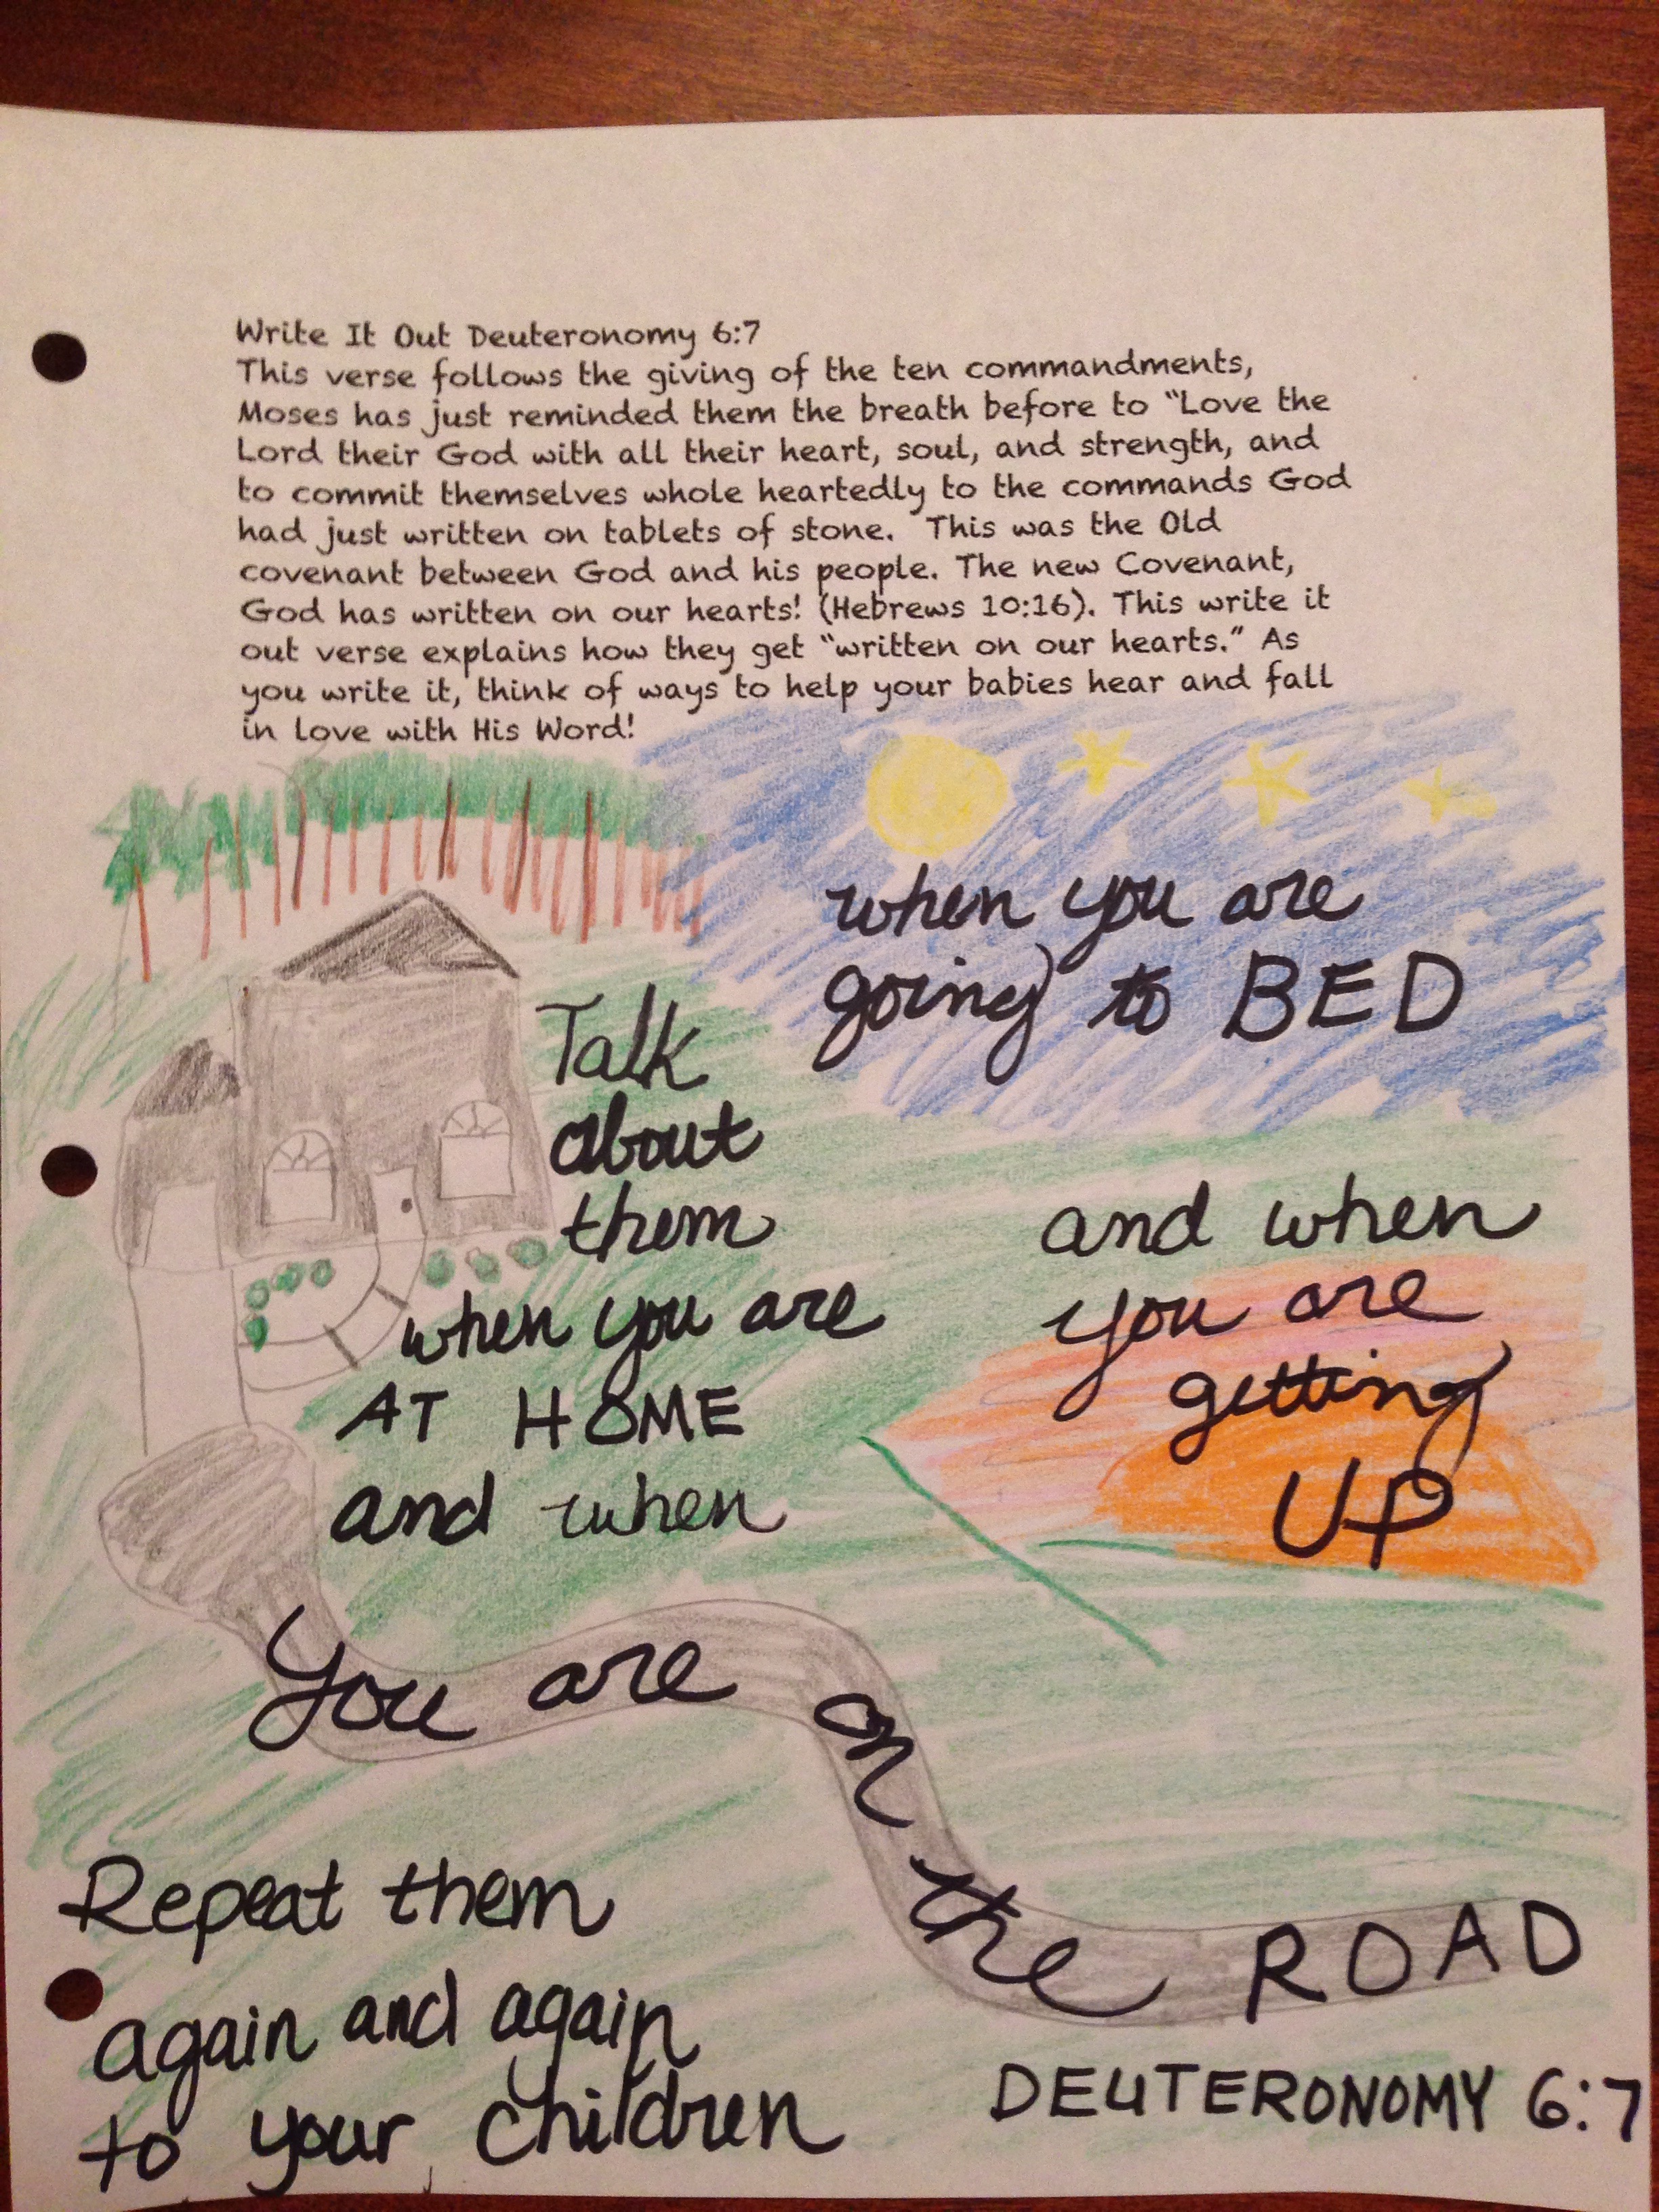 Write It Out Deuteronomy 6:7
This verse follows the giving of the ten commandments,
Moses has just reminded them the breath before to “Love the
Lord their God with all their heart, soul, and strength, and
to commit themselves whole heartedly to the commands God
had just written on tablets of stone.  This was the Old
covenant between God and his people. The new Covenant,
God has written on our hearts! (Hebrews 10:16). This write it
out verse explains how they get “written on our hearts.” As
you write it, think of ways to help your babies hear and fall
in love with His Word!
Repeat them
again and again
to your children
Talk
about
them
when you are
AT HOME
and when
You are on the ROAD
when you are
going to BED
and when
you are
getting
UP
DEUTERONOMY 6:7